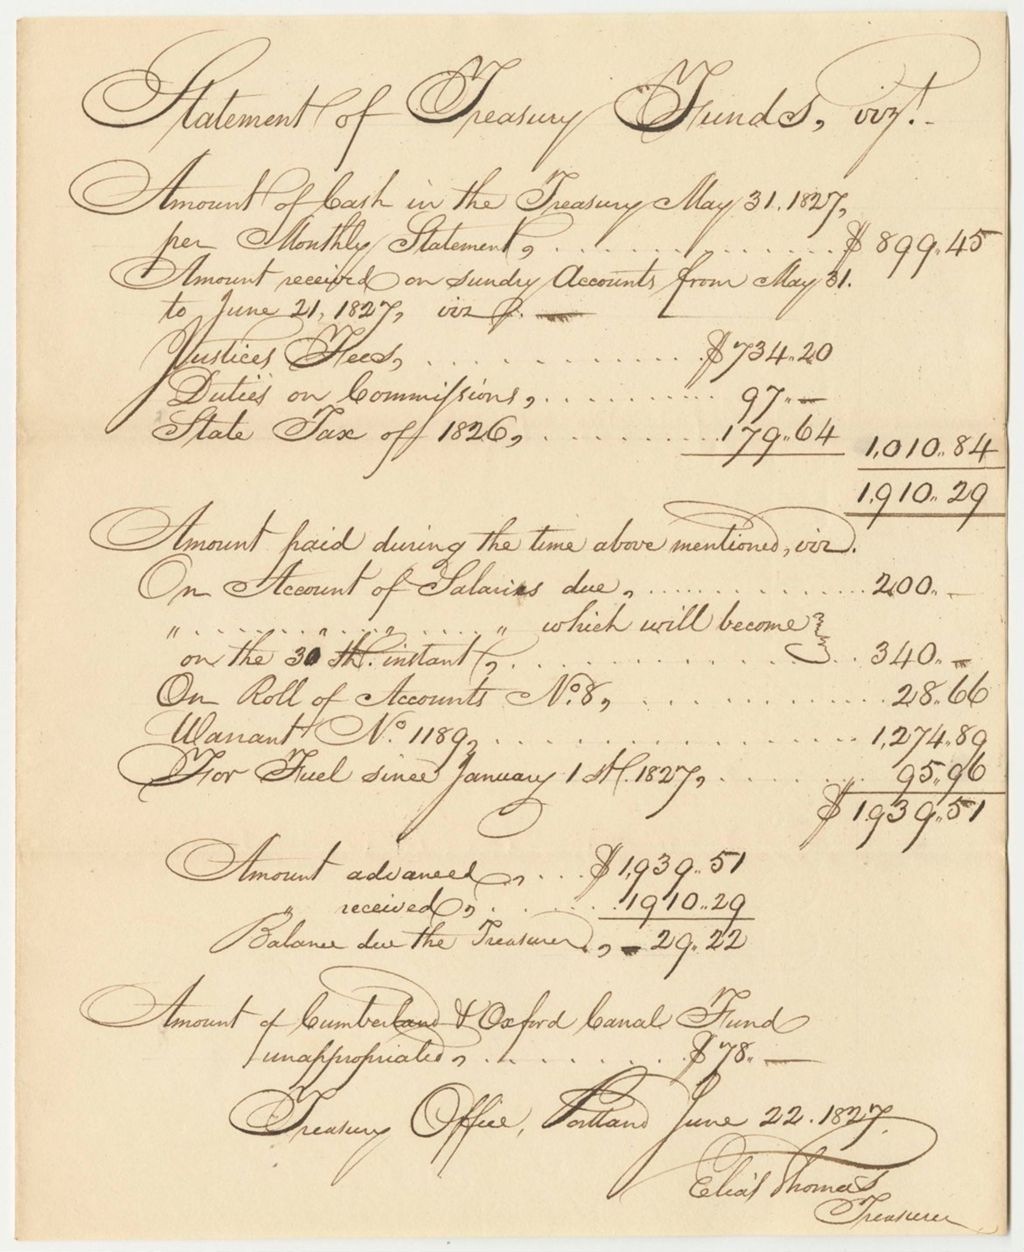 Statement of Treasury Funds, vizt.
Amount of Cash in the Treasury May 31. 1827,
per Monthly Statement, . . . . . . . . . . . $899.45
Amount received on sundry Accounts from May 31.
to June 21, 1827, viz.
Justices Fees, . . . . . . . . . . . . $734.20
Duties on Commissions, . . . . . . . . . 97. —
State Tax of 1826, . . . . . . . . . 179.64 1,010.84
1,910.29
Amount paid during the time above mentioned, viz.
On Account of Salaries due, . . . . . . . . . . . 200. —
" . . . . . . " . . . . " . . . . . . " which will become }
on the 30 th. instant, . . . . . . . . . . . . . 340. —
On Roll of Accounts No. 8, . . . . . . . . . . . 28.66
Warrant No. 1189, . . . . . . . . . . . . . . . 1,274.89
For Fuel since January 1 st. 1827, . . . . . . . 95.96
$1,939.51
Amount advanced, . . . $1,939.51
" received, . . . . . . 1910.29
Balance due the Treasurer, — 29.22
Amount of Cumberland & Oxford Canal Fund
unappropriated, . . . . . . . . $78. —
Treasury Office, Portland June 22. 1827.
Elias Thomas
Treasurer